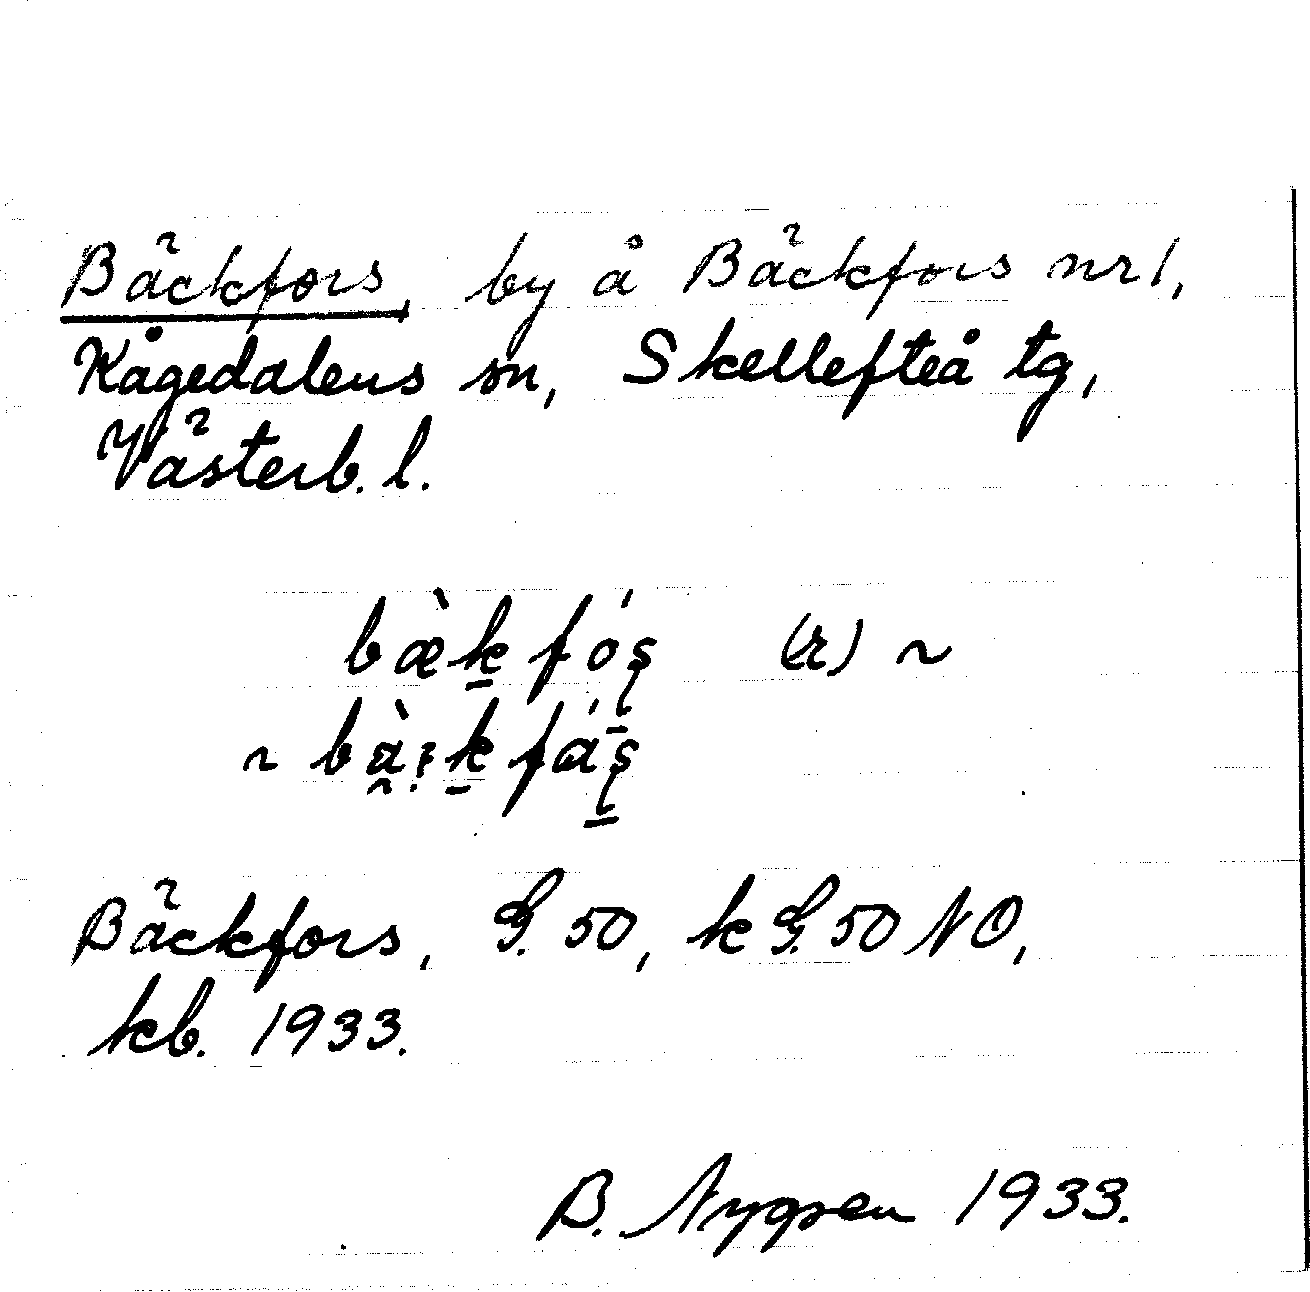 Bäckfors, by å Bäckfors nr 1,
Kågedalens sn, Skellefteå tg,
Västerb. l.
bæ̀k̠fó̧ş (r) ~
~ bà̰ːk̠fáş
Bäckfors, G. 50, k G. 50 NO,
kb. 1933.
B. Nygren 1933.